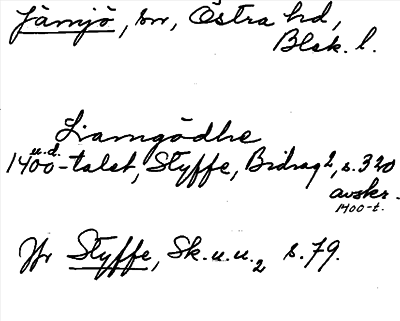 Jämjö, sn, Östra hd,
Blek. l.
Liamgödhe
u.d.
1400-talet, Styffe, Bidrag 2, s. 320
avskr.
1400-t.
Jfr Styffe, Sk.u.u.2 s. 79.